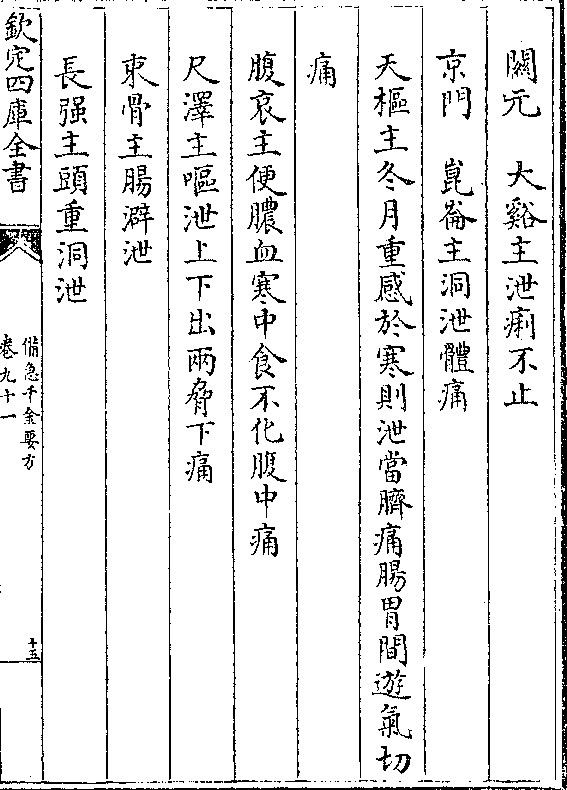 關元　大谿主泄痢不止
京門　崑崙主洞泄體痛
天樞主冬月重感於寒則泄當臍痛腸胃間遊氣切
痛
腹哀主便膿血寒中食不化腹中痛
尺澤主嘔泄上下出兩脅下痛
束骨主腸澼泄
長强主頭重洞泄
欽定四庫全書
備急千金要方
卷九十一
十五